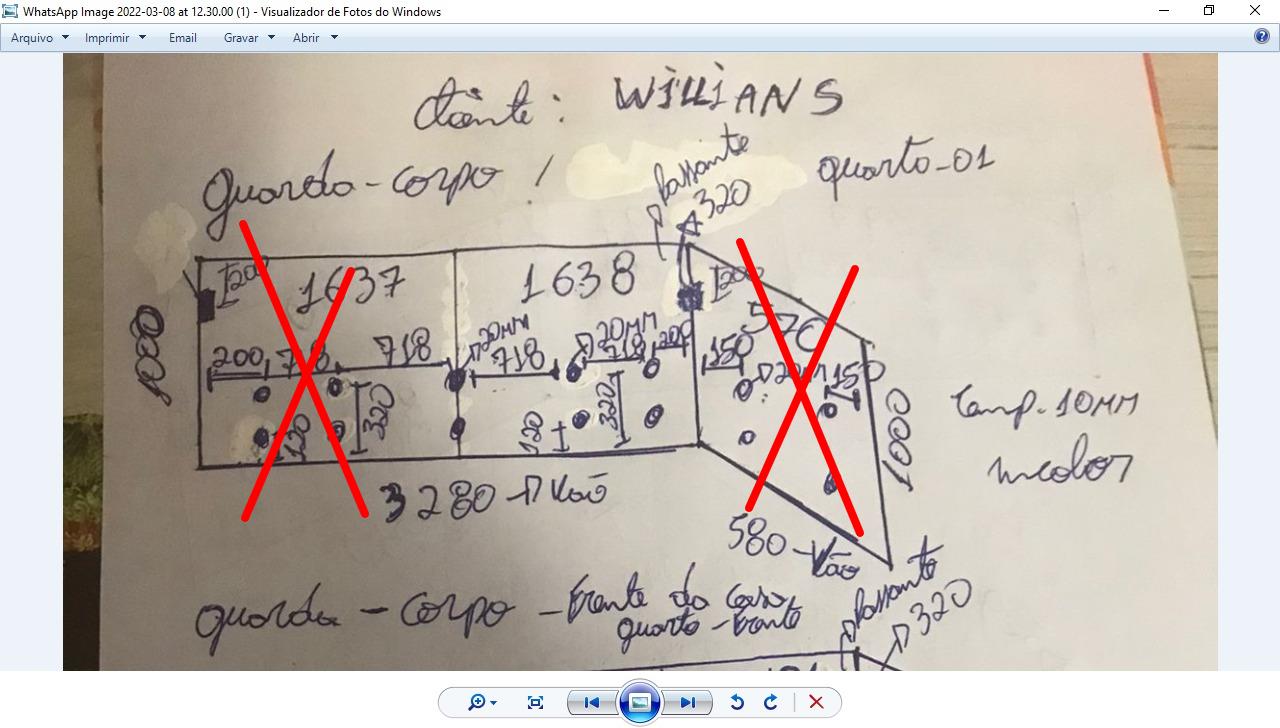 WhatsApp Image 2022-03-08 at 12.30.00 (1) - Visualizador de Fotos do Windows
Arquivo Imprimir Email Gravar Abrir
WILLIANS
Guarda-corpo
Passante
320
quarto-01
200 1637 1638 200
570
1000
200 718 718 20MM 718 20MM 718 200 150 150
120 320 120 320
1000
Temp. 10MM
incolor
3280 Vão
580 Vão
guarda - corpo - frente da casa,
quarto - frente
Passante
320